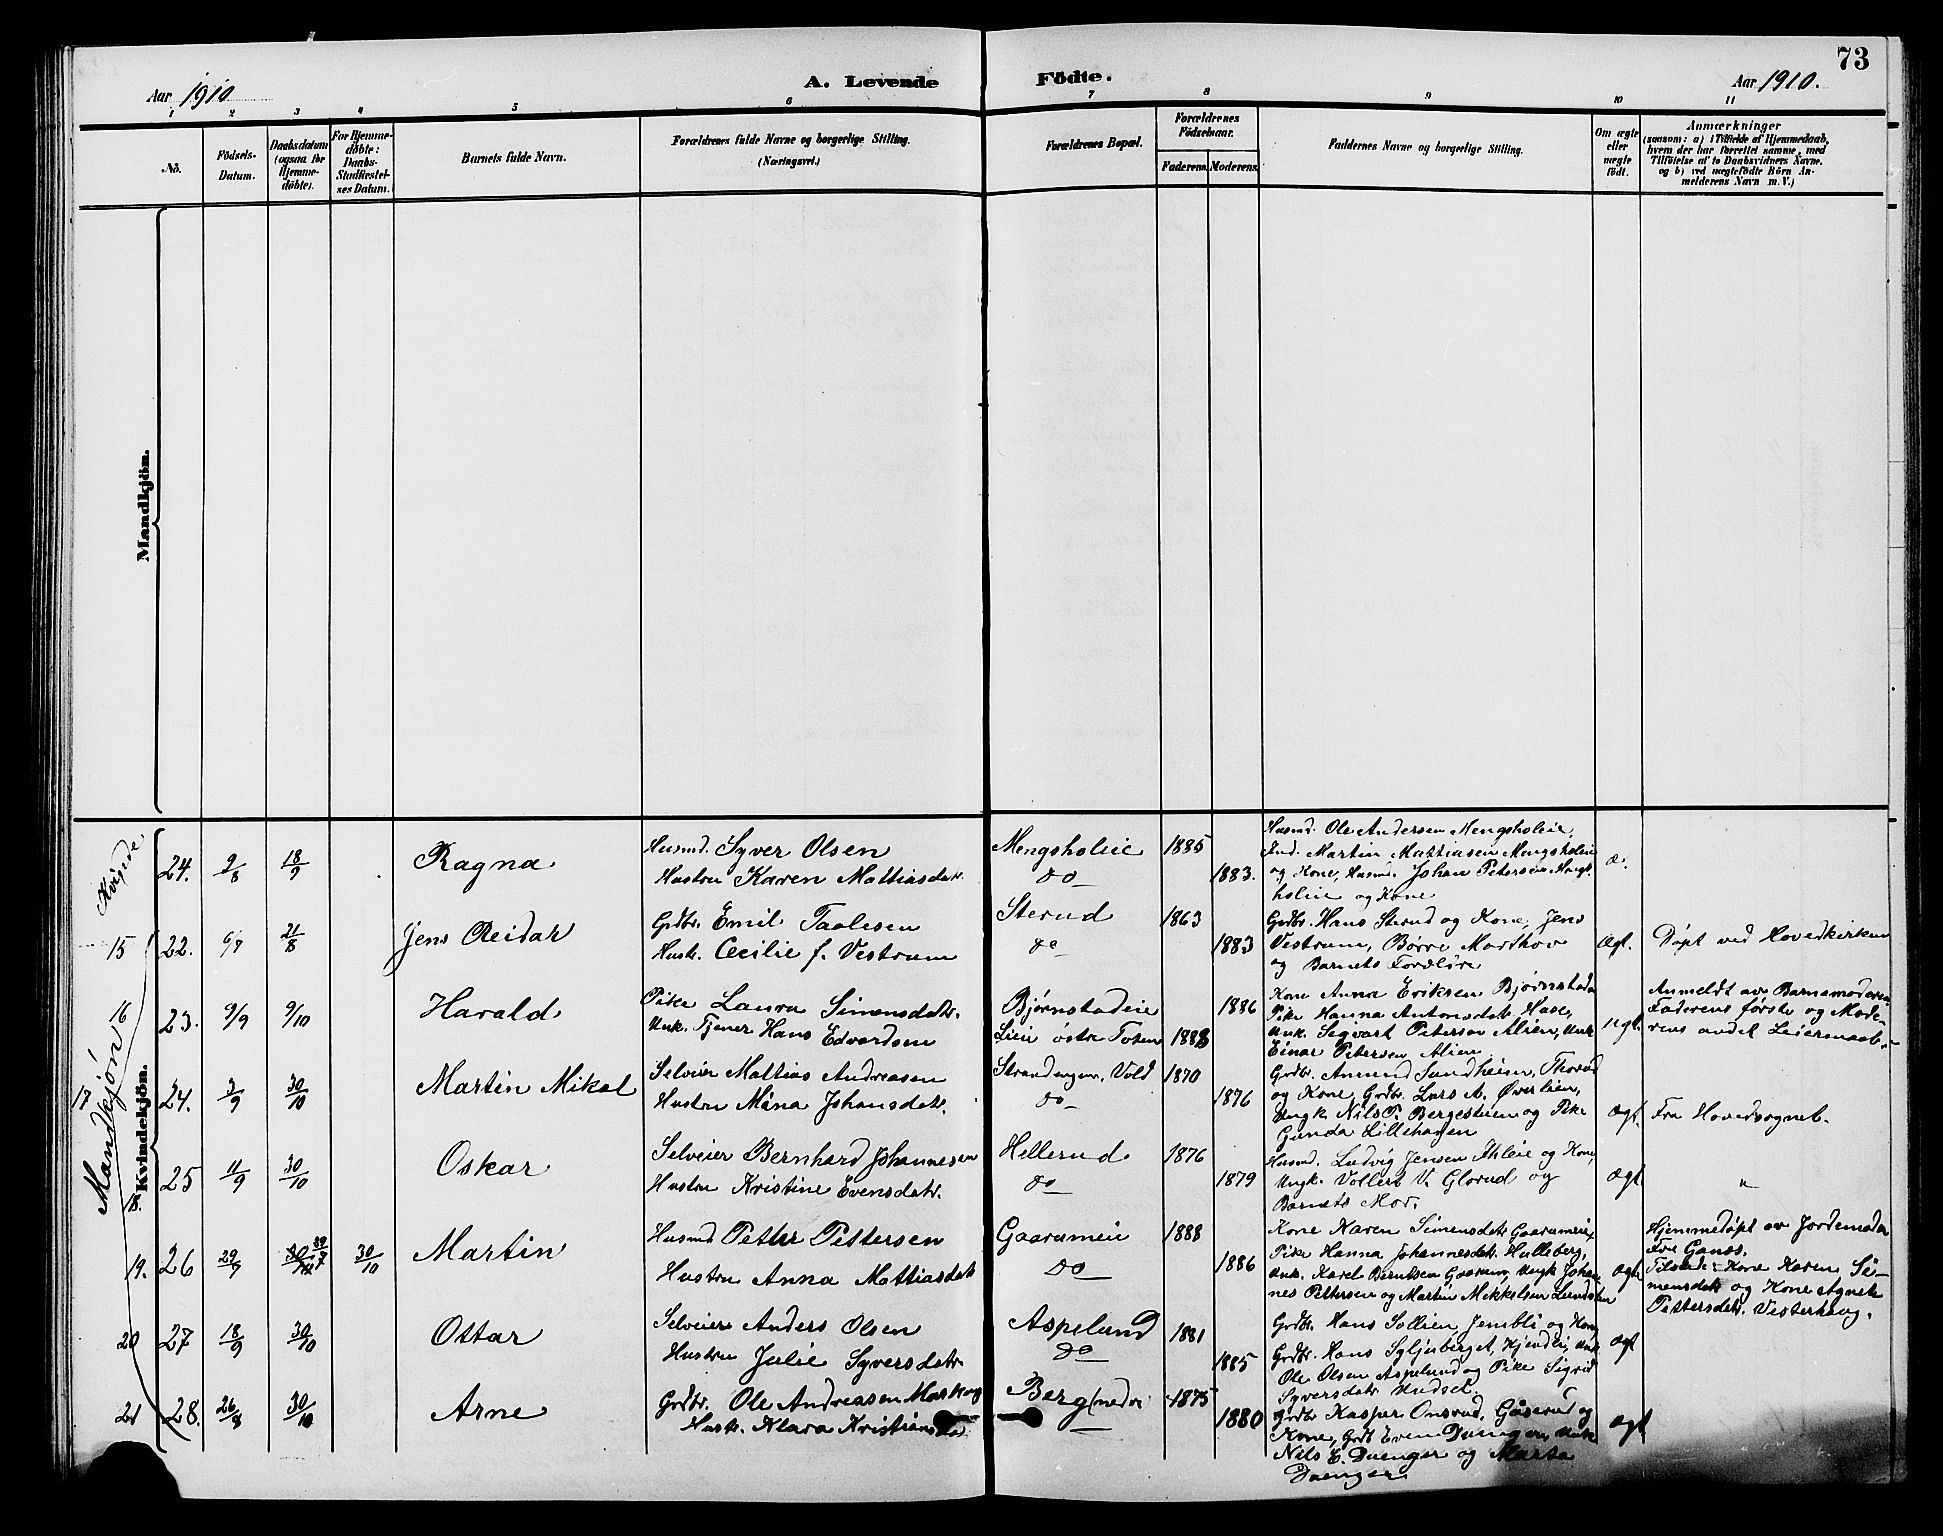 73
Aar 1910
A. Levende Födte.
Aar 1910.
1 2 3 4 5 6 7 8 9 10 11
No.
Födsels-
Datum.
Daabsdatum
(ogsaa for
Hjemme-
döbte).
For Hjemme-
döbte:
Daabs-
Stadfæstel-
ses Datum.
Barnets fulde Navn.
Forældrenes fulde Navne og borgerlige Stilling.
(Næringsvei.)
Forældrenes Bopæl.
Forældrenes
Födselsaar.
Faderens. Moderens.
Faddernes Navne og borgerlige Stilling.
Om ægte
eller
uægte
födt.
Anmærkninger
(saasom: a) i Tilfælde af Hjemmedaab,
hvem der har forrettet samme, med
Tilföielse af to Daabsvidners Navne.
og b) ved uægtefödte Börn An-
melderens Navn m. V.)
Mandkjön.
Kvindekjön.
Mandkjön
24. 9/8 18/9 Ragna
Husmd. Syver Olsen
Hustru Karen Mattiasdatr.
Mengsholeie
do
1885
1883.
Husmd. Ole Andersen Mengsholeie,
Ind. Martin Mattiasen Mengsholeie
og Kone, Husmd. Johan Petersen Mengs-
holeie og Kone
æ.
15 22. 6/7 21/8 Jens Reidar
Grdbr. Emil Taalesen
Hustr. Cecilie f. Vestrum
Sterud
do
1863
1883
Grdbr. Hans Sterud og Kone, Jens
Vestrum, Børre Marthov
og Barnets Forældre
Ægt.
Døpt ved Hovedkirken
16 23. 9/9 9/10 Harald
Pike Laura Simensdatr.
Unk. Tjener Hans Edvardsen
Bjørnstadeie
Lien østre Toten
1886
1888
Kone Anna Eriksen Bjørnstade
Pike Hanna Antonsdatr. Hase,
Unk. Sigvart Petersen Alien, Unk
Einar Petersen Alien
uægt.
Anmeldt av Barnemoderen
Faderens første og Mode-
rens andet Leiermaal.
17 24. 3/9 30/10 Martin Mikal
Selveier Mattias Andreasen
Hustru Mina Johansdatr.
Strandengen, Vold
do
1870
1876
Grdbr. Amund Sundheim, Thorud
og Kone, Grdbr. Lars A. Øverlien,
Ungk. Nils P. Bergesteien og Pike
Gunda Lillehagen
Ægt.
Fra Hovedsognet.
18. 25 11/9 30/10 Oskar
Selveier Bernhard Johannesen
Hustru Kristine Evensdatr.
Hellerud
do
1876
1879
Husmd. Ludvig Jensen Ahleie og Kone,
Ungk. Vollert V. Glorud og
Barnets Mor.
Ægt.
"
19. 26 29/7 30/10 Martin
Husmd Petter Pettersen
Hustru Anna Mattiasdatr
Gaarumeie
do
1888
1886
Kone Karen Simensdatr Gaarumeie,
Pike Hanna Johannesdatr. Hulleberg,
Unk. Karel Berntsen Gaarum, Ungk Johan
nes Pettersen og Martin Mikkelsen
Ægt
Hjemmedøpt av Jordemoder
Frk Ganss.
Tilstede: Kone Karen Si-
mensdatr og Kone Agnete
Pettersdatr. Vesterhaug.
20 27 18/9 30/10 Ottar
Selveier Anders Olsen
Hustru Julie Syversdatr.
Aspelund
do
1881
1885
Grdbr. Hans Sollien Jembli og Kone,
Grdbr. Hans Syljuberget, Kjendli, Unk.
Ole Olsen Aspelund og Pike Sigrid
Syversdatr Undset.
Ægt
21 28. 26/8 30/10 Arne
Grdbr. Ole Andreasen
Hustr. Klara Kristians
Berg (nedre
1875
1880
Grdbr. Kasper Onsrud, Gåserud og
Kone, Grdb Even Duenger, Unk
Nils E. Duenger og Marta
Duenger.
Ægt